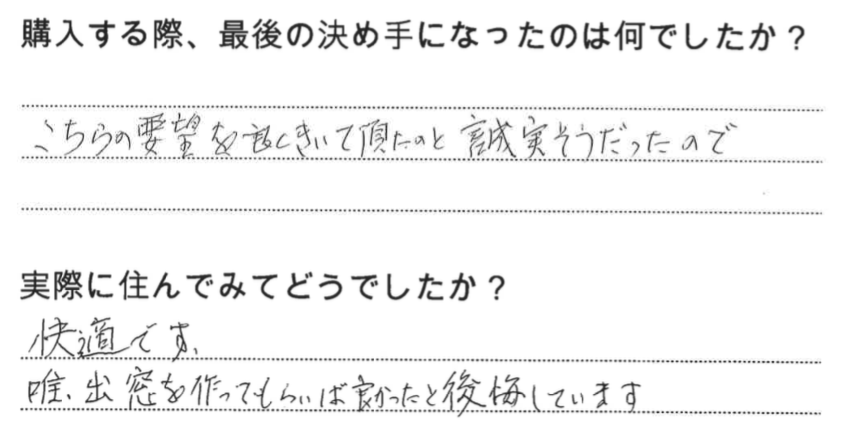 購入する際、最後の決め手になったのは何でしたか？
こちらの要望を良くきいて頂たのと誠実そうだったので
実際に住んでみてどうでしたか？
快適です、
唯、出窓を作ってもらいば良かったと後悔しています